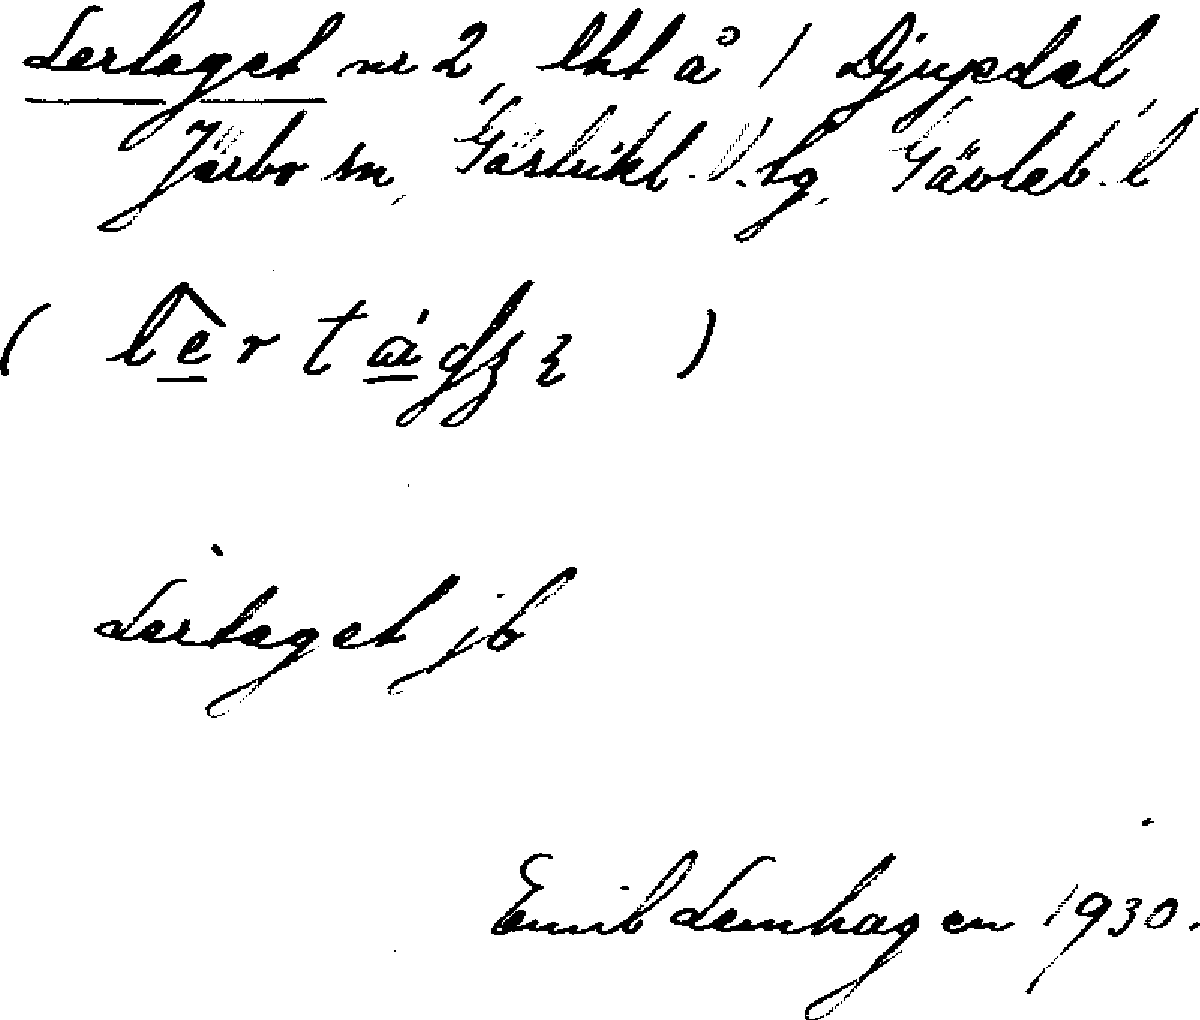 Lertaget nr 2, lht å 1 Djupdal,
Järbo sn, Gästrikl. V. tg, Gävleb. l
( lertag )
Lertaget jb
Emil Lemhagen 1930.